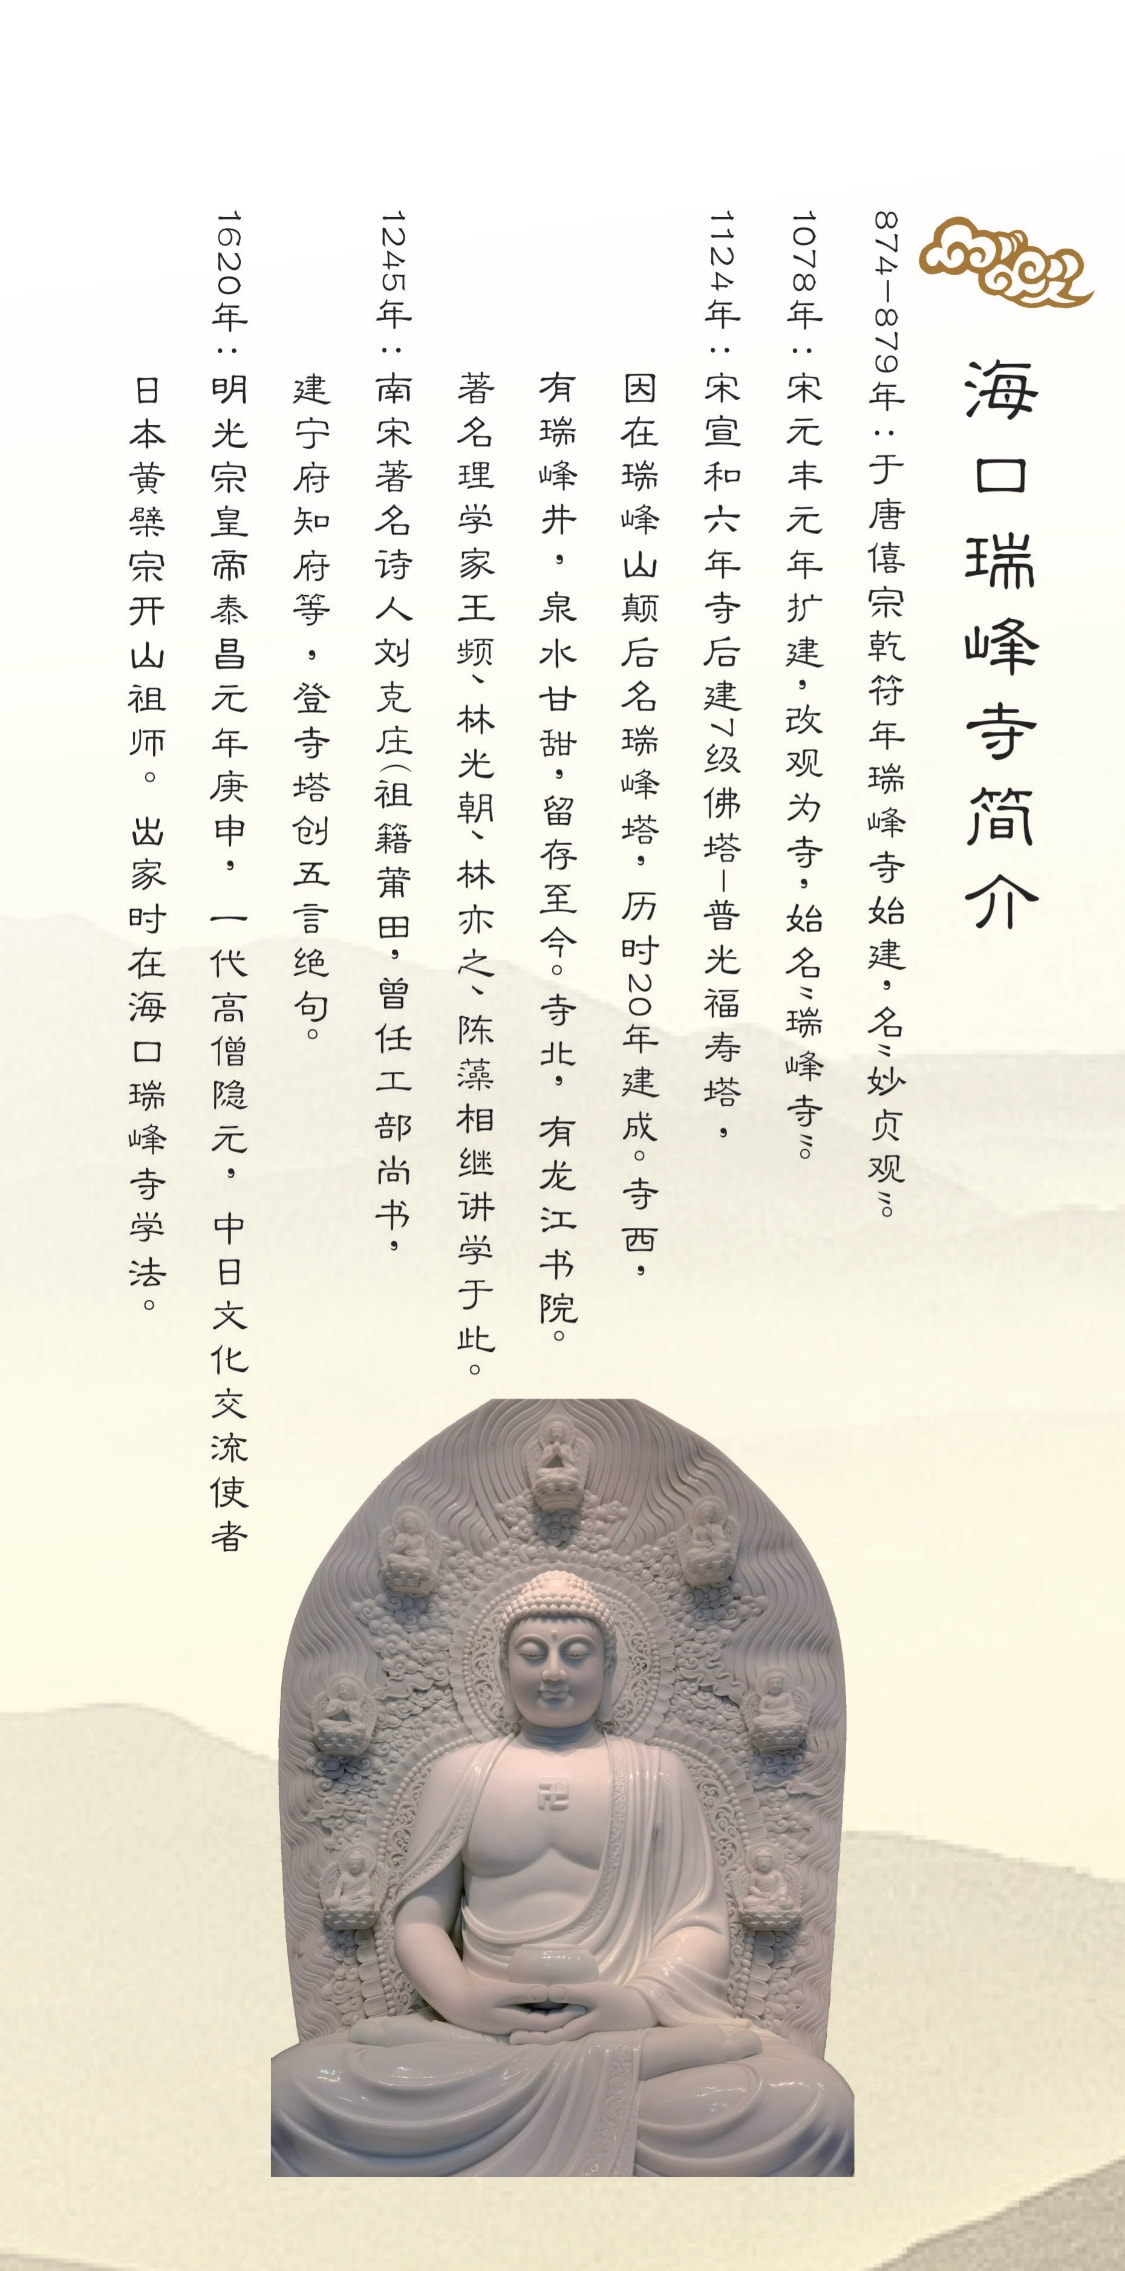 海口瑞峰寺简介
874—879年：于唐僖宗乾符年瑞峰寺始建，名“妙贞观”。
1078年：宋元丰元年扩建，改观为寺，始名“瑞峰寺”。
1124年：宋宣和六年寺后建7级佛塔—普光福寿塔，
因在瑞峰山颠后名瑞峰塔，历时20年建成。寺西，
有瑞峰井，泉水甘甜，留存至今。寺北，有龙江书院。
著名理学家王频、林光朝、林亦之、陈藻相继讲学于此。
1245年：南宋著名诗人刘克庄（祖籍莆田，曾任工部尚书，
建宁府知府等，登寺塔创五言绝句。
1620年：明光宗皇帝泰昌元年庚申，一代高僧隐元，中日文化交流使者
日本黄檗宗开山祖师。出家时在海口瑞峰寺学法。
卍